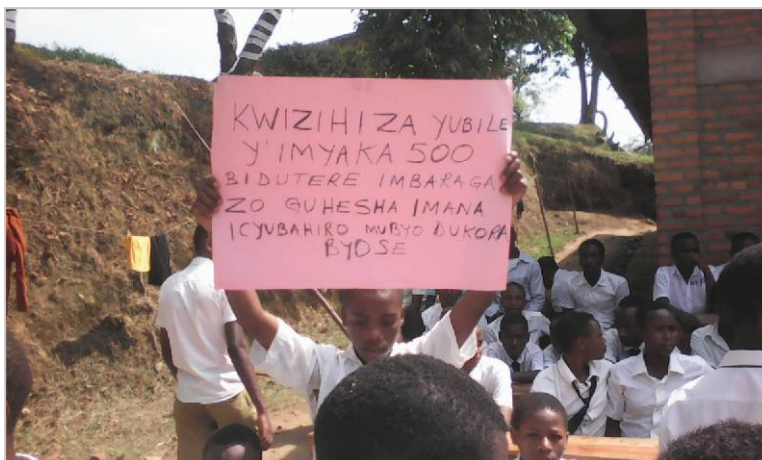 KWIZIHIZA YUBILE
Y'IMYAKA 500
BIDUTERE IMBARAGA
ZO GUHESHA IMANA
ICYUBAHIRO MUBYO DUKORA
BYOSE